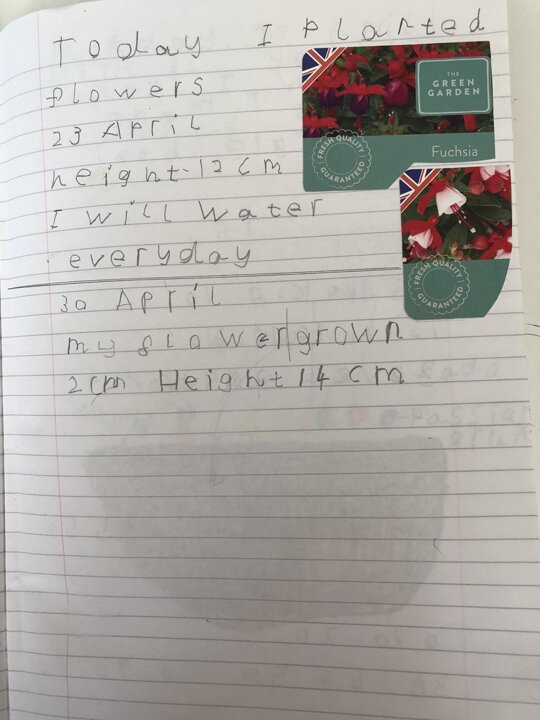 Today I planted
flowers
23 April
height-12cm
I will water
everyday
30 April
my flower grown
2cm Height 14 cm
THE
GREEN
GARDEN
Fuchsia
FRESH QUALITY
GUARANTEED
FRESH QUALITY
GUARANTEED